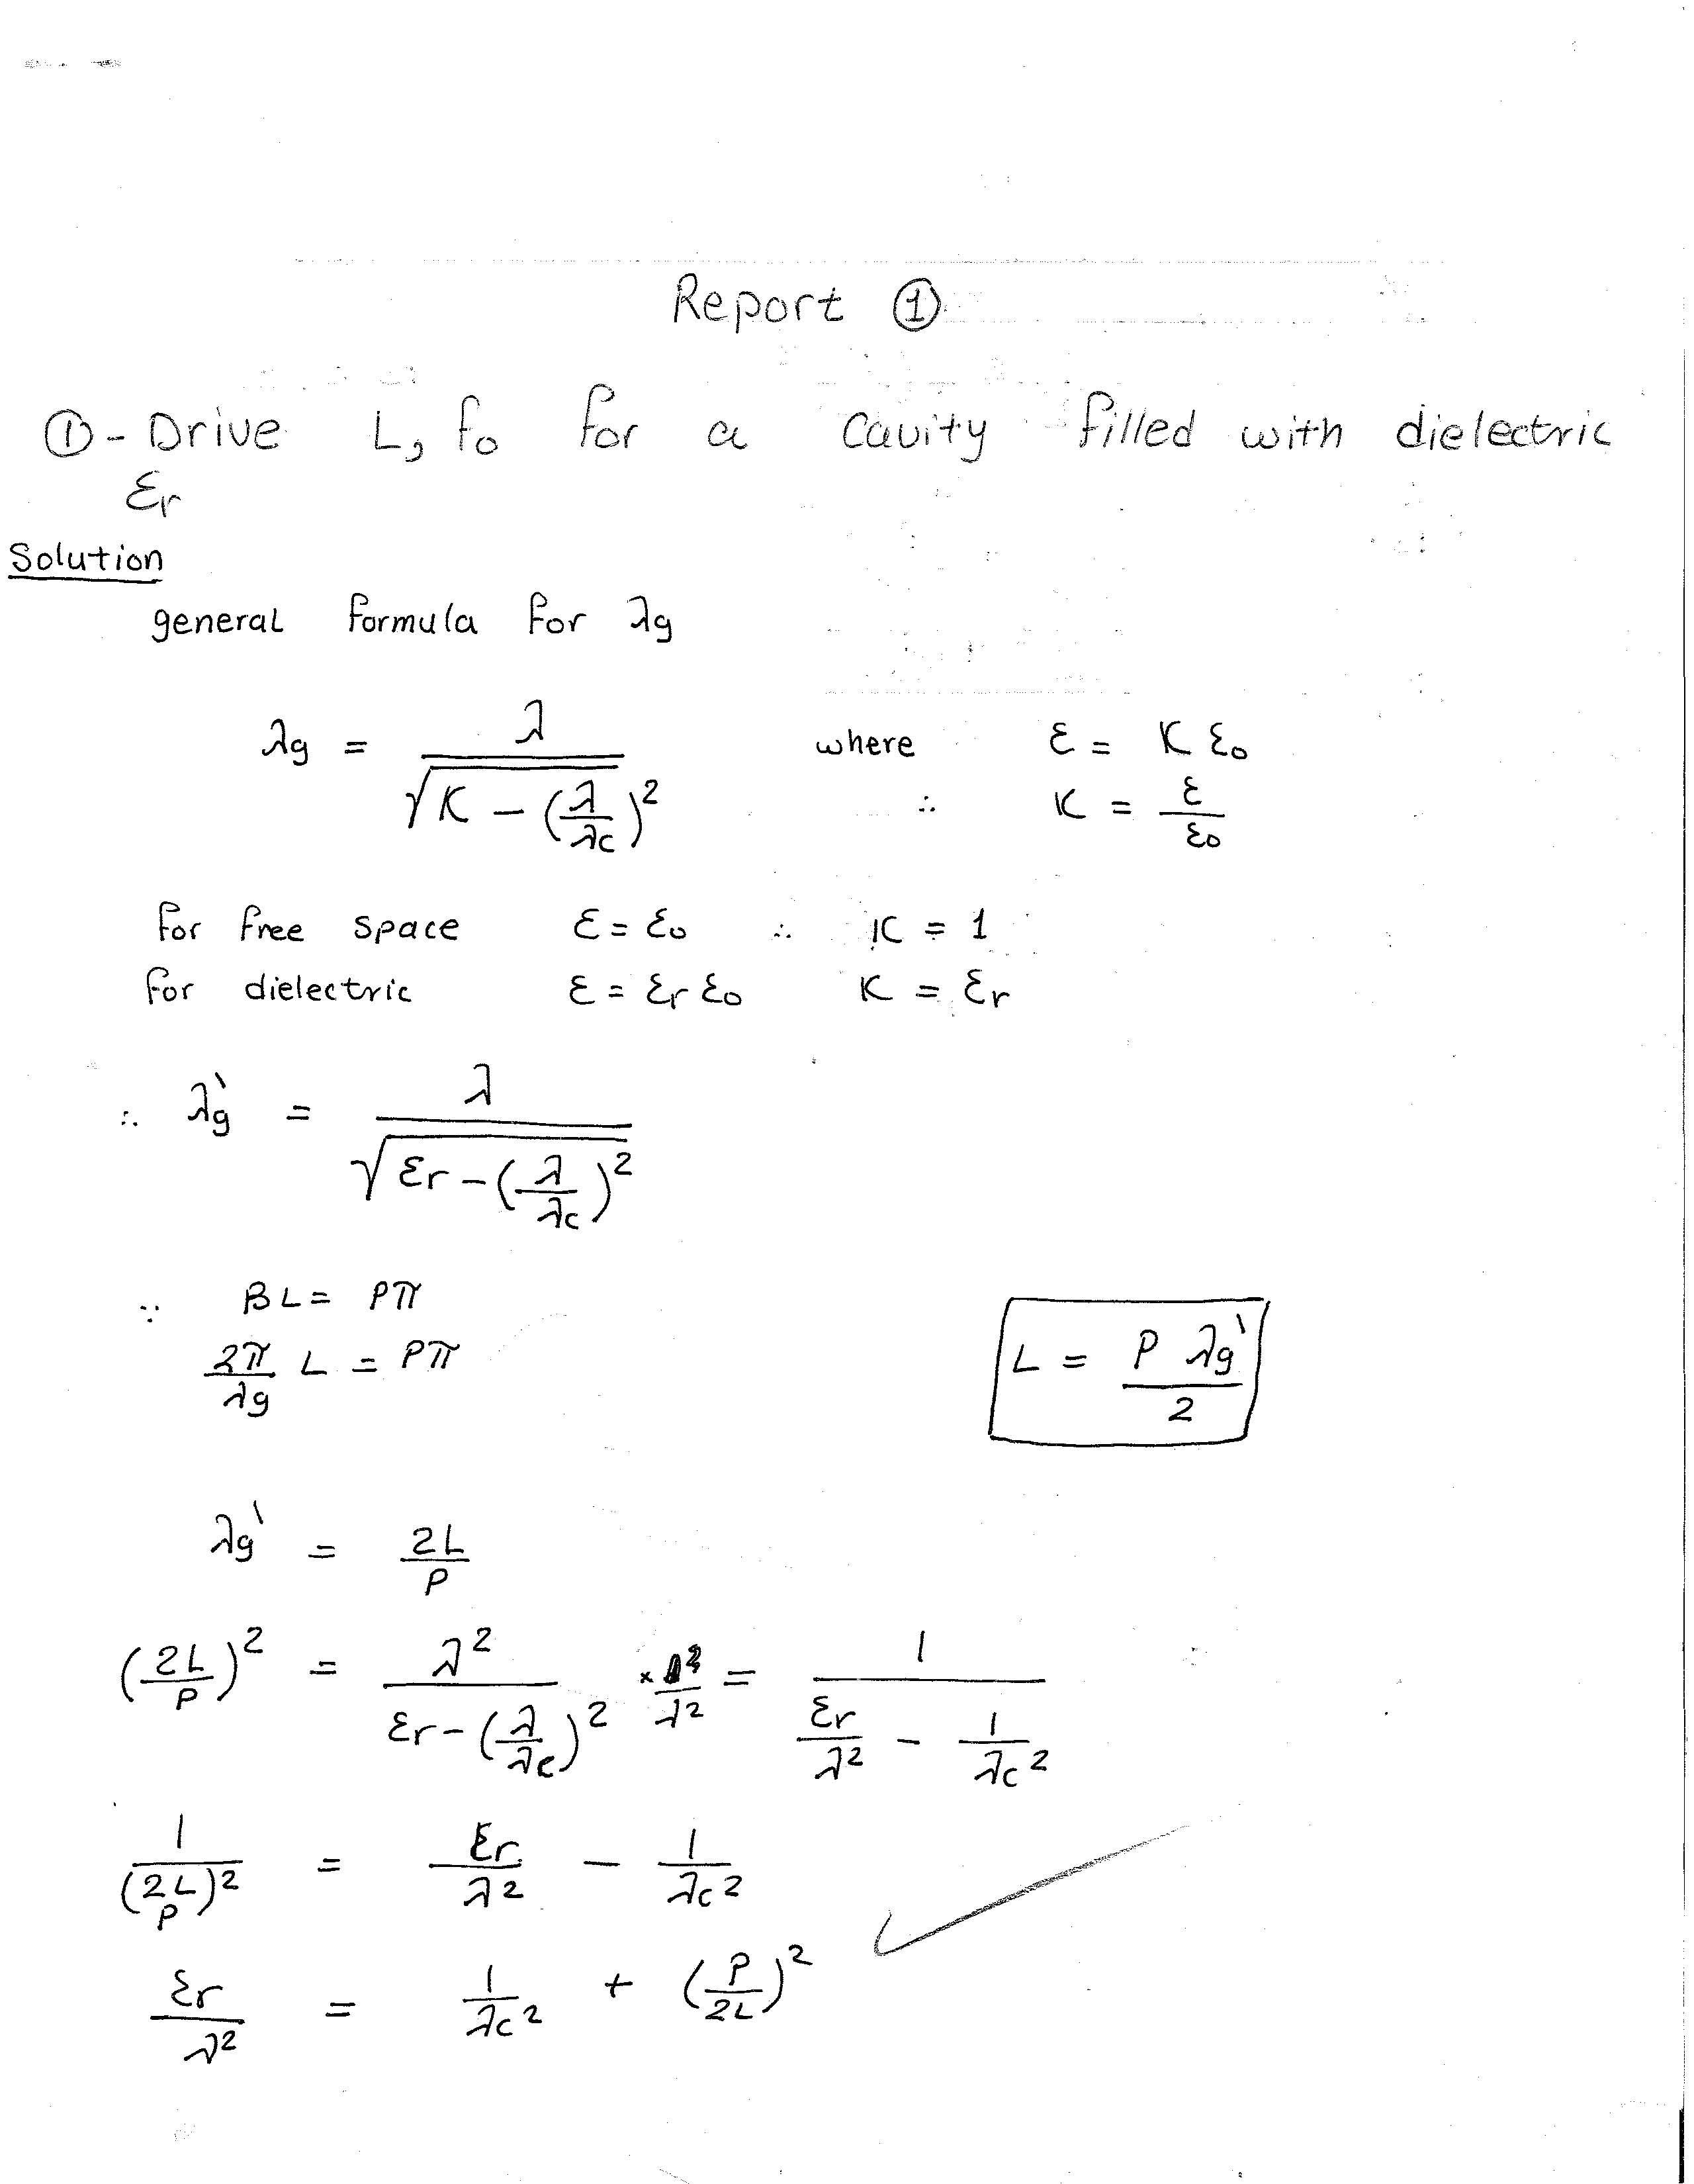 Report ①
①- Drive L, fo for a cavity filled with dielectric
εr
Solution
general formula for λg
λg = λ / √(K - (λ/λc)²) where ε = K εo
∴ K = ε/εo
for free space ε = εo ∴ K = 1
for dielectric ε = εr εo K = εr
∴ λg` = λ / √(εr - (λ/λc)²)
∵ BL = Pπ
2π/λg L = Pπ
L = P λg` / 2
λg` = 2L/P
(2L/P)² = λ² / (εr - (λ/λc)²) = 1 / (εr/λ² - 1/λc²)
1/(2L/P)² = εr/λ² - 1/λc²
εr/λ² = 1/λc² + (P/2L)²